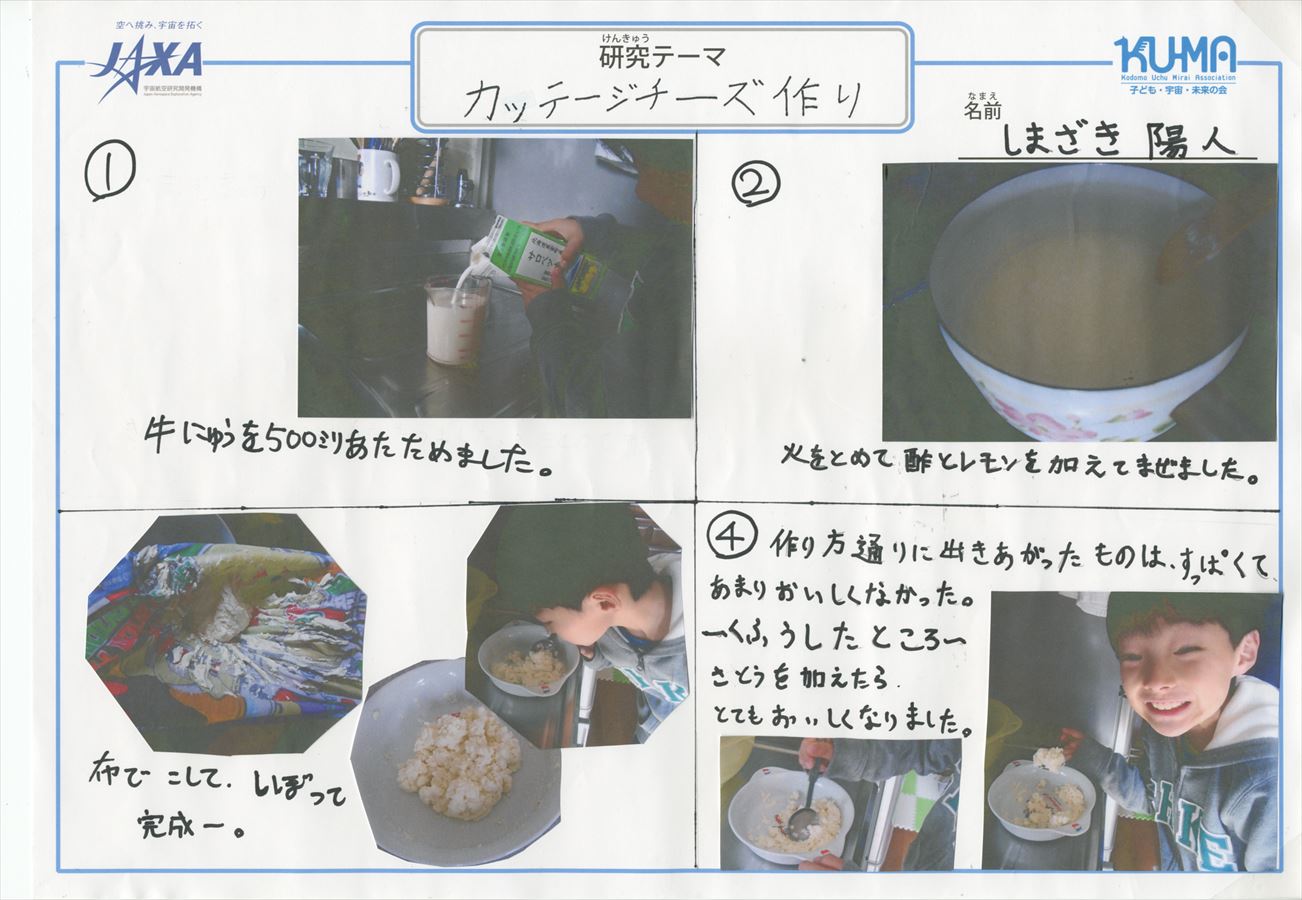 空へ挑み、宇宙を拓く
JAXA
宇宙航空研究開発機構
Japan Aerospace Exploration Agency
けんきゅう
研究テーマ
カッテージチーズ作り
KU-MA
Kodomo Uchu Mirai Association
子ども・宇宙・未来の会
なまえ
名前
しまざき 陽人
①
牛にゅうを500ミリあたためました。
②
火をとめて酢とレモンを加えてまぜました。
布でこして、しぼって
完成ー。
④ 作り方通りに出きあがったものは、すっぱくて、
あまりおいしくなかった。
〜くふうしたところ〜
さとうを加えたら、
とてもおいしくなりました。